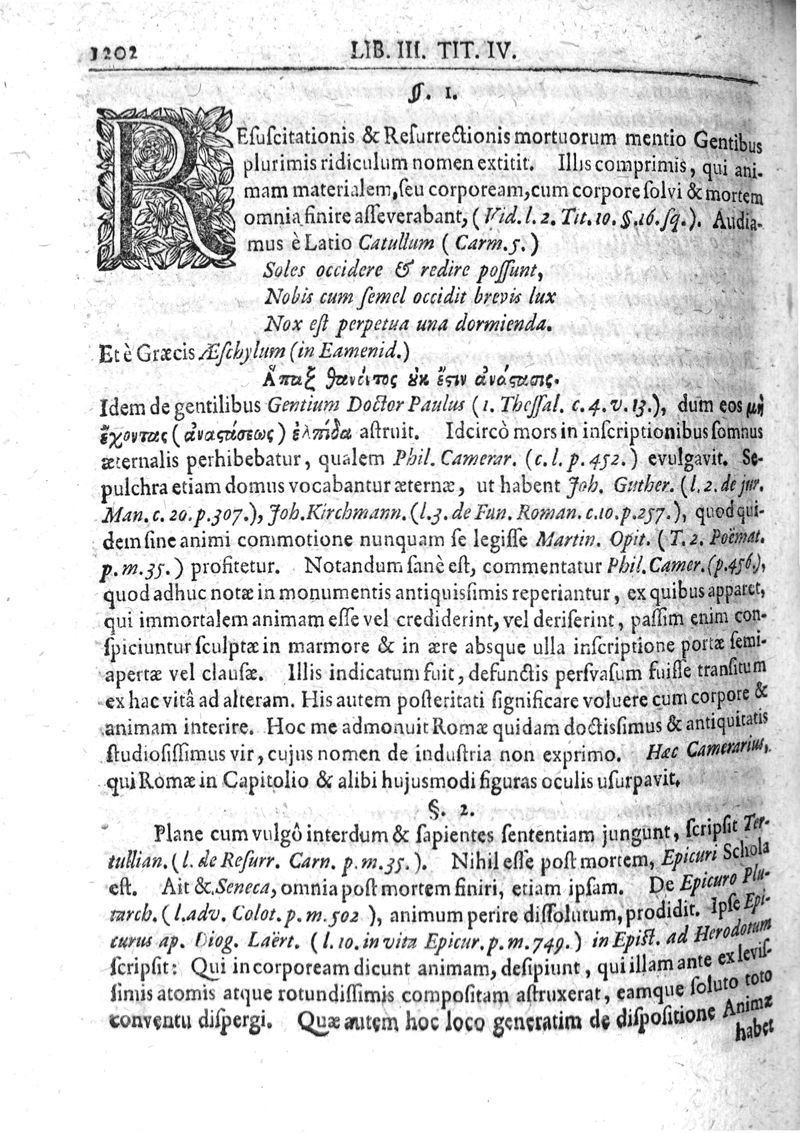 1202 LIB. III. TIT. IV.
§. 1.
REſuſcitationis & Reſurrectionis mortuorum mentio Gentibus
plurimis ridiculum nomen extitit. Illis comprimis, qui ani-
mam materialem, ſeu corpoream, cum corpore ſolvi & mortem
omnia finire aſſeverabant, (Vid. l. 2. Tit. 10. §. 16. ſq.). Audia-
mus è Latio Catullum (Carm. 5.)
Soles occidere & redire poſſunt,
Nobis cum ſemel occidit brevis lux
Nox eſt perpetua una dormienda.
Et è Græcis Æſchylum (in Eamenid.)
Ἅπαξ θανέντος ȣκ ἔϛιν ἀνάϛασις.
Idem de gentilibus Gentium Doctor Paulus (1. Theſſal. c. 4. v. 13.), dum eos μὴ
ἔχοντας (ἀναϛάσεως) ἐλπίδα aſtruit. Idcircò mors in inſcriptionibus ſomnus
æternalis perhibebatur, qualem Phil. Camerar. (c. l. p. 452.) evulgavit. Se-
pulchra etiam domus vocabantur æternæ, ut habent Joh. Guther. (l. 2. de jur.
Man. c. 20. p. 307.), Joh. Kirchmann. (l. 3. de Fun. Roman. c. 10. p. 257.), quod qui-
dem ſine animi commotione nunquam ſe legiſſe Martin. Opit. (T. 2. Poëmat.
p. m. 35.) profitetur. Notandum ſanè eſt, commentatur Phil. Camer. (p. 456.),
quod adhuc notæ in monumentis antiquiſſimis reperiantur, ex quibus apparet,
qui immortalem animam eſſe vel crediderint, vel deriſerint, paſſim enim con-
ſpiciuntur ſculptæ in marmore & in ære absque ulla inſcriptione portæ ſemi-
apertæ vel clauſæ. Illis indicatum fuit, defunctis perſvaſum fuiſſe tranſitum
ex hac vitâ ad alteram. His autem poſteritati ſignificare voluere cum corpore &
animam interire. Hoc me admonuit Romæ quidam doctiſſimus & antiquitatis
ſtudioſiſſimus vir, cujus nomen de induſtria non exprimo. Hæc Camerarius,
qui Romæ in Capitolio & alibi hujusmodi figuras oculis uſurpavit.
§. 2.
Plane cum vulgô interdum & ſapientes ſententiam jungunt, ſcripſit Ter-
tullian. (l. de Reſurr. Carn. p. m. 35.). Nihil eſſe poſt mortem, Epicuri Schola
eſt. Ait & Seneca, omnia poſt mortem finiri, etiam ipſam. De Epicuro Plu-
tarch. (l. adv. Colot. p. m. 502), animum perire diſſolutum, prodidit. Ipſe Epi-
curus ap. Diog. Laërt. (l. 10. in vita Epicur. p. m. 749.) in Epiſt. ad Herodotum
ſcripſit: Qui incorpoream dicunt animam, deſipiunt, qui illam ante ex leviſ-
ſimis atomis atque rotundiſſimis compoſitam aſtruxerat, eamque ſoluto toto
conventu diſpergi. Quæ autem hoc loco generatim de diſpoſitione Animæ
habet